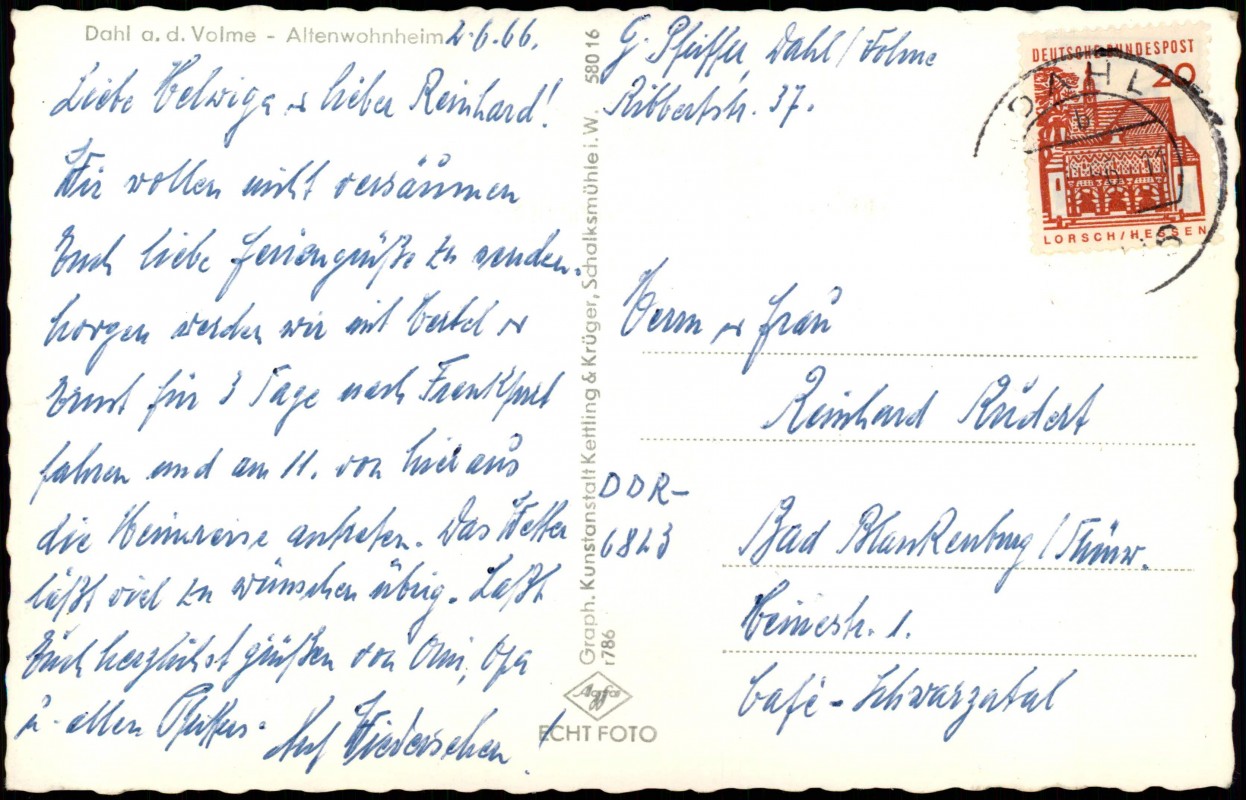 Dahl a. d. Volme - Altenwohnheim
2.6.66.
Liebe Helwiga u lieber Reinhard!
Wir wollen nicht versäumen
Euch liebe Feriengrüße zu senden.
Morgen werden wir mit Bertel u
Ernst für 3 Tage nach Frankfurt
fahren und am 11. von hier aus
die Heimreise antreten. Das Wetter
läßt viel zu wünschen übrig. Laßt
Euch herzlichst grüßen von Omi, Opa
u. allen Pfeiffers. Auf Wiedersehen!
Graph. Kunstanstalt Kettling & Krüger, Schalksmühle i.W. 580 16
r786
Agfa
ECHT FOTO
G. Pfeiffer, Dahl/Volme
Ribbertstr. 37.
DEUTSCHE BUNDESPOST
20
LORSCH/HESSEN
DAHL
Herrn u Frau
Reinhard Rudert
DDR-
6823
Bad Blankenburg/Thürw.
Heinestr. 1.
Café - Schwarzatal